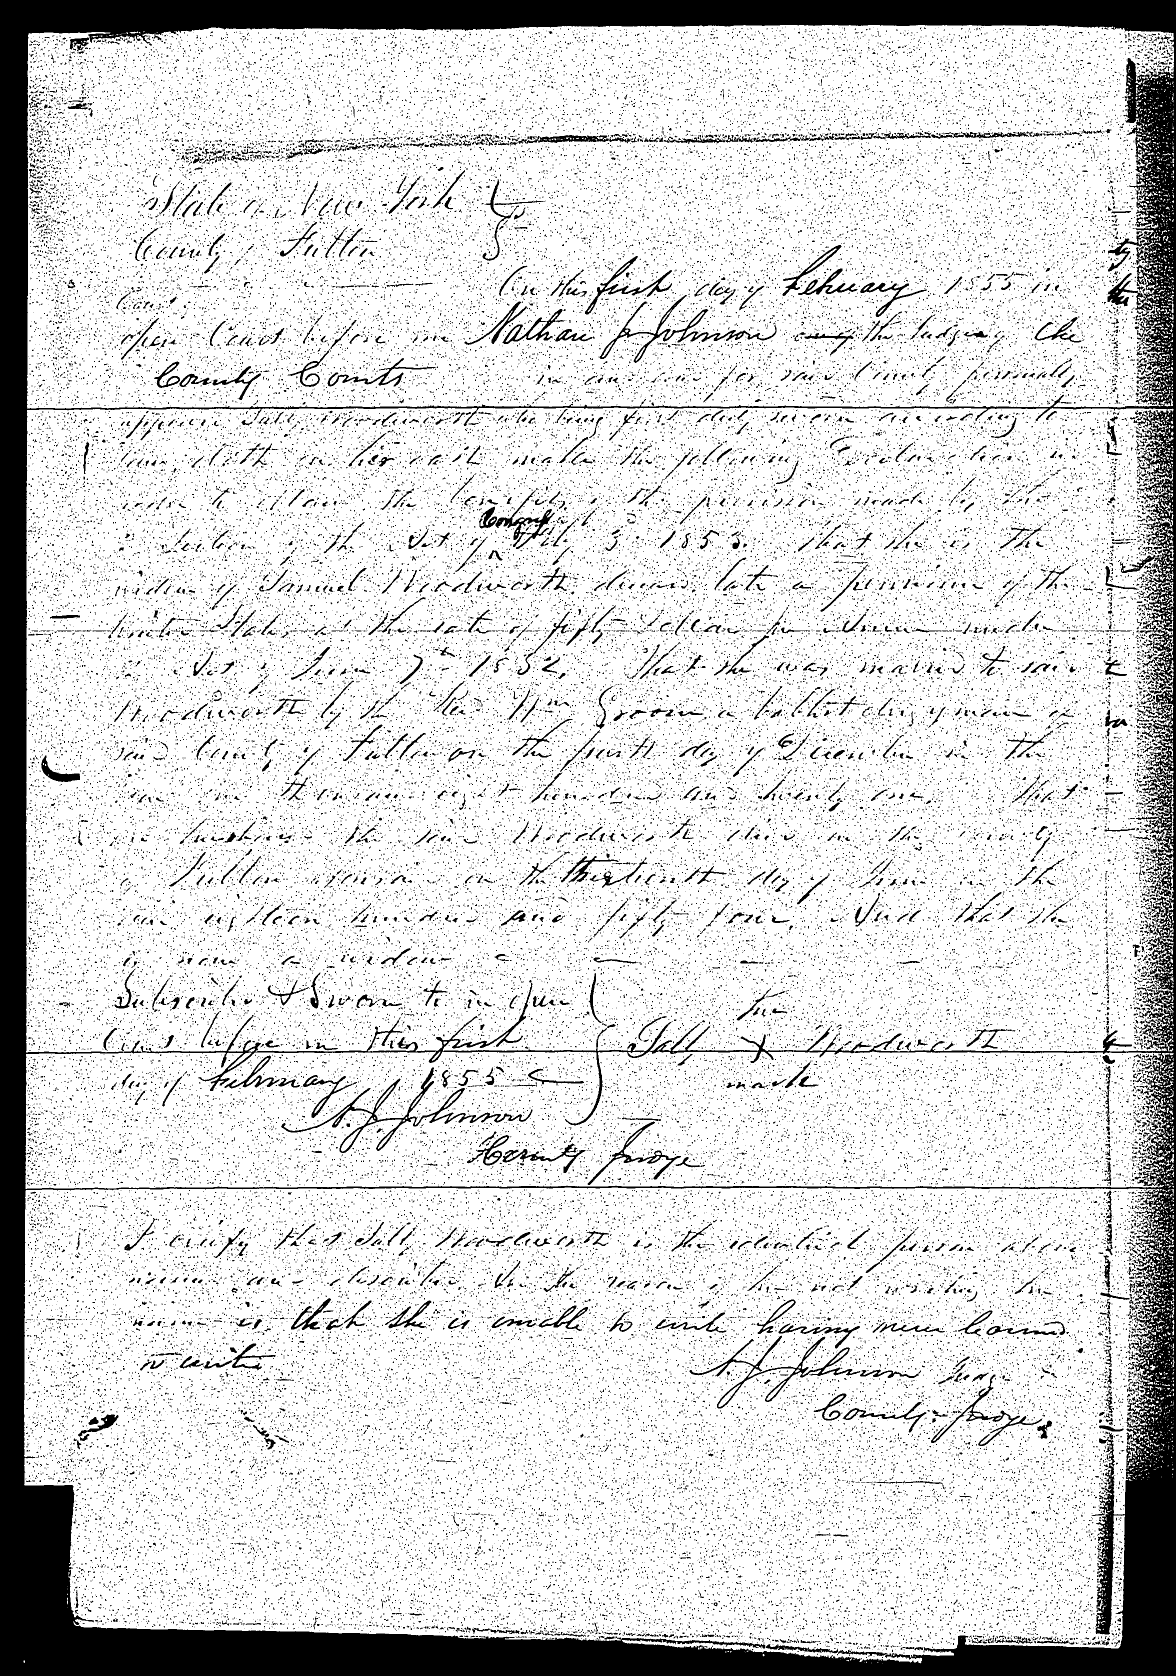 State of New York } ss
County of Fulton
On this first day of February 1855 in
open Court before me Nathan J Johnson one of the Judges of the
County Courts in and for said County personally
appeared Sally Woodworth who being first duly sworn according to
law, doth on her oath make the following Declaration in
order to obtain the benefits of the provision made by the
2 Section of the Act of Congress Feb 3 1853. That she is the
widow of Samuel Woodworth deceased late a pensioner of the
United States at the rate of fifty Dollars per Annum under
Act of June 7th 1832. That she was married to said
Woodworth by the Rev Wm Groom, a babtist clergyman of
said County of Fulton on the fourth day of December in the
year one thousand eight hundred and twenty one. That
her husband the said Woodworth died in the county
of Fulton aforesaid on the thirteenth day of June in the
year eighteen hundred and fifty four. And that she
is now a widow
Subscribed & Sworn to in open
Court before me this first
day of February 1855
her
Sally X Woodworth
mark
N. J. Johnson
County Judge
I certify that Sally Woodworth is the identical person above
named and described. And the reason of her not writing her
name is that she is unable to write having never learned
to write
N. J. Johnson Judge
County Judge